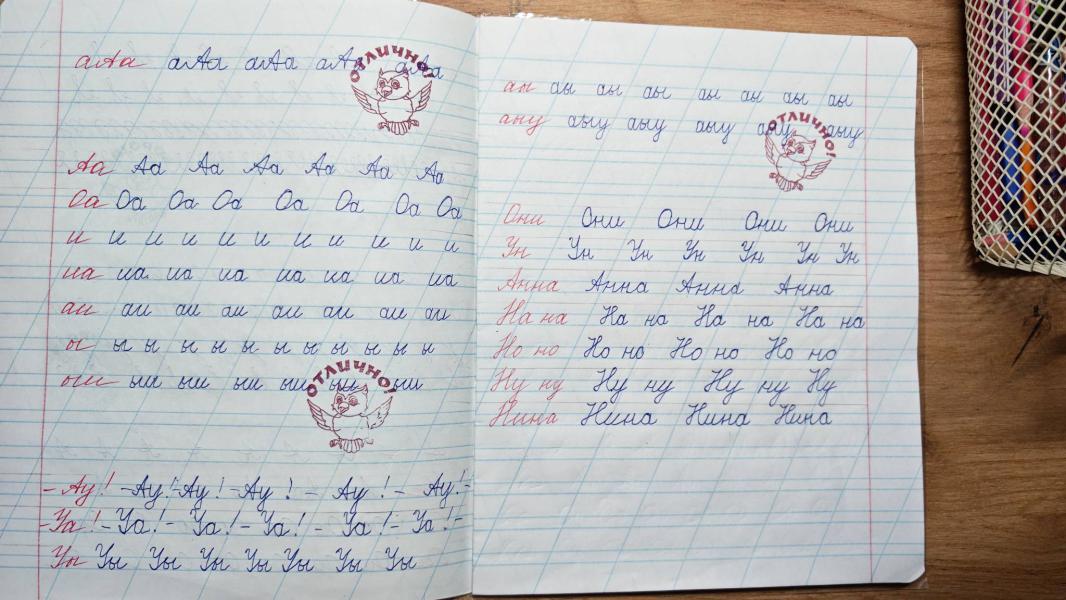 аАа аАа аАа аАа аАа
ОТЛИЧНО!
Аа Аа Аа Аа Аа Аа Аа
Оа Оа Оа Оа Оа Оа Оа Оа
и и и и и и и и и и и
иа иа иа иа иа иа иа иа
аи аи аи аи аи аи аи аи
ы ы ы ы ы ы ы ы ы ы ы ы
ыи ыи ыи ыи ыи ыи ыи
ОТЛИЧНО!
– Ау! – Ау! – Ау! – Ау! – Ау! – Ау! –
– Уа! – Уа! – Уа! – Уа! – Уа! – Уа! –
Уы Уы Уы Уы Уы Уы Уы Уы
аы аы аы аы аы аы аы аы
аыу аыу аыу аыу аыу аыу
ОТЛИЧНО!
Они Они Они Они Они
Ун Ун Ун Ун Ун Ун Ун
Анна Анна Анна Анна
На на На на На на На на
Но но Но но Но но Но но
Ну ну Ну ну Ну ну Ну
Нина Нина Нина Нина